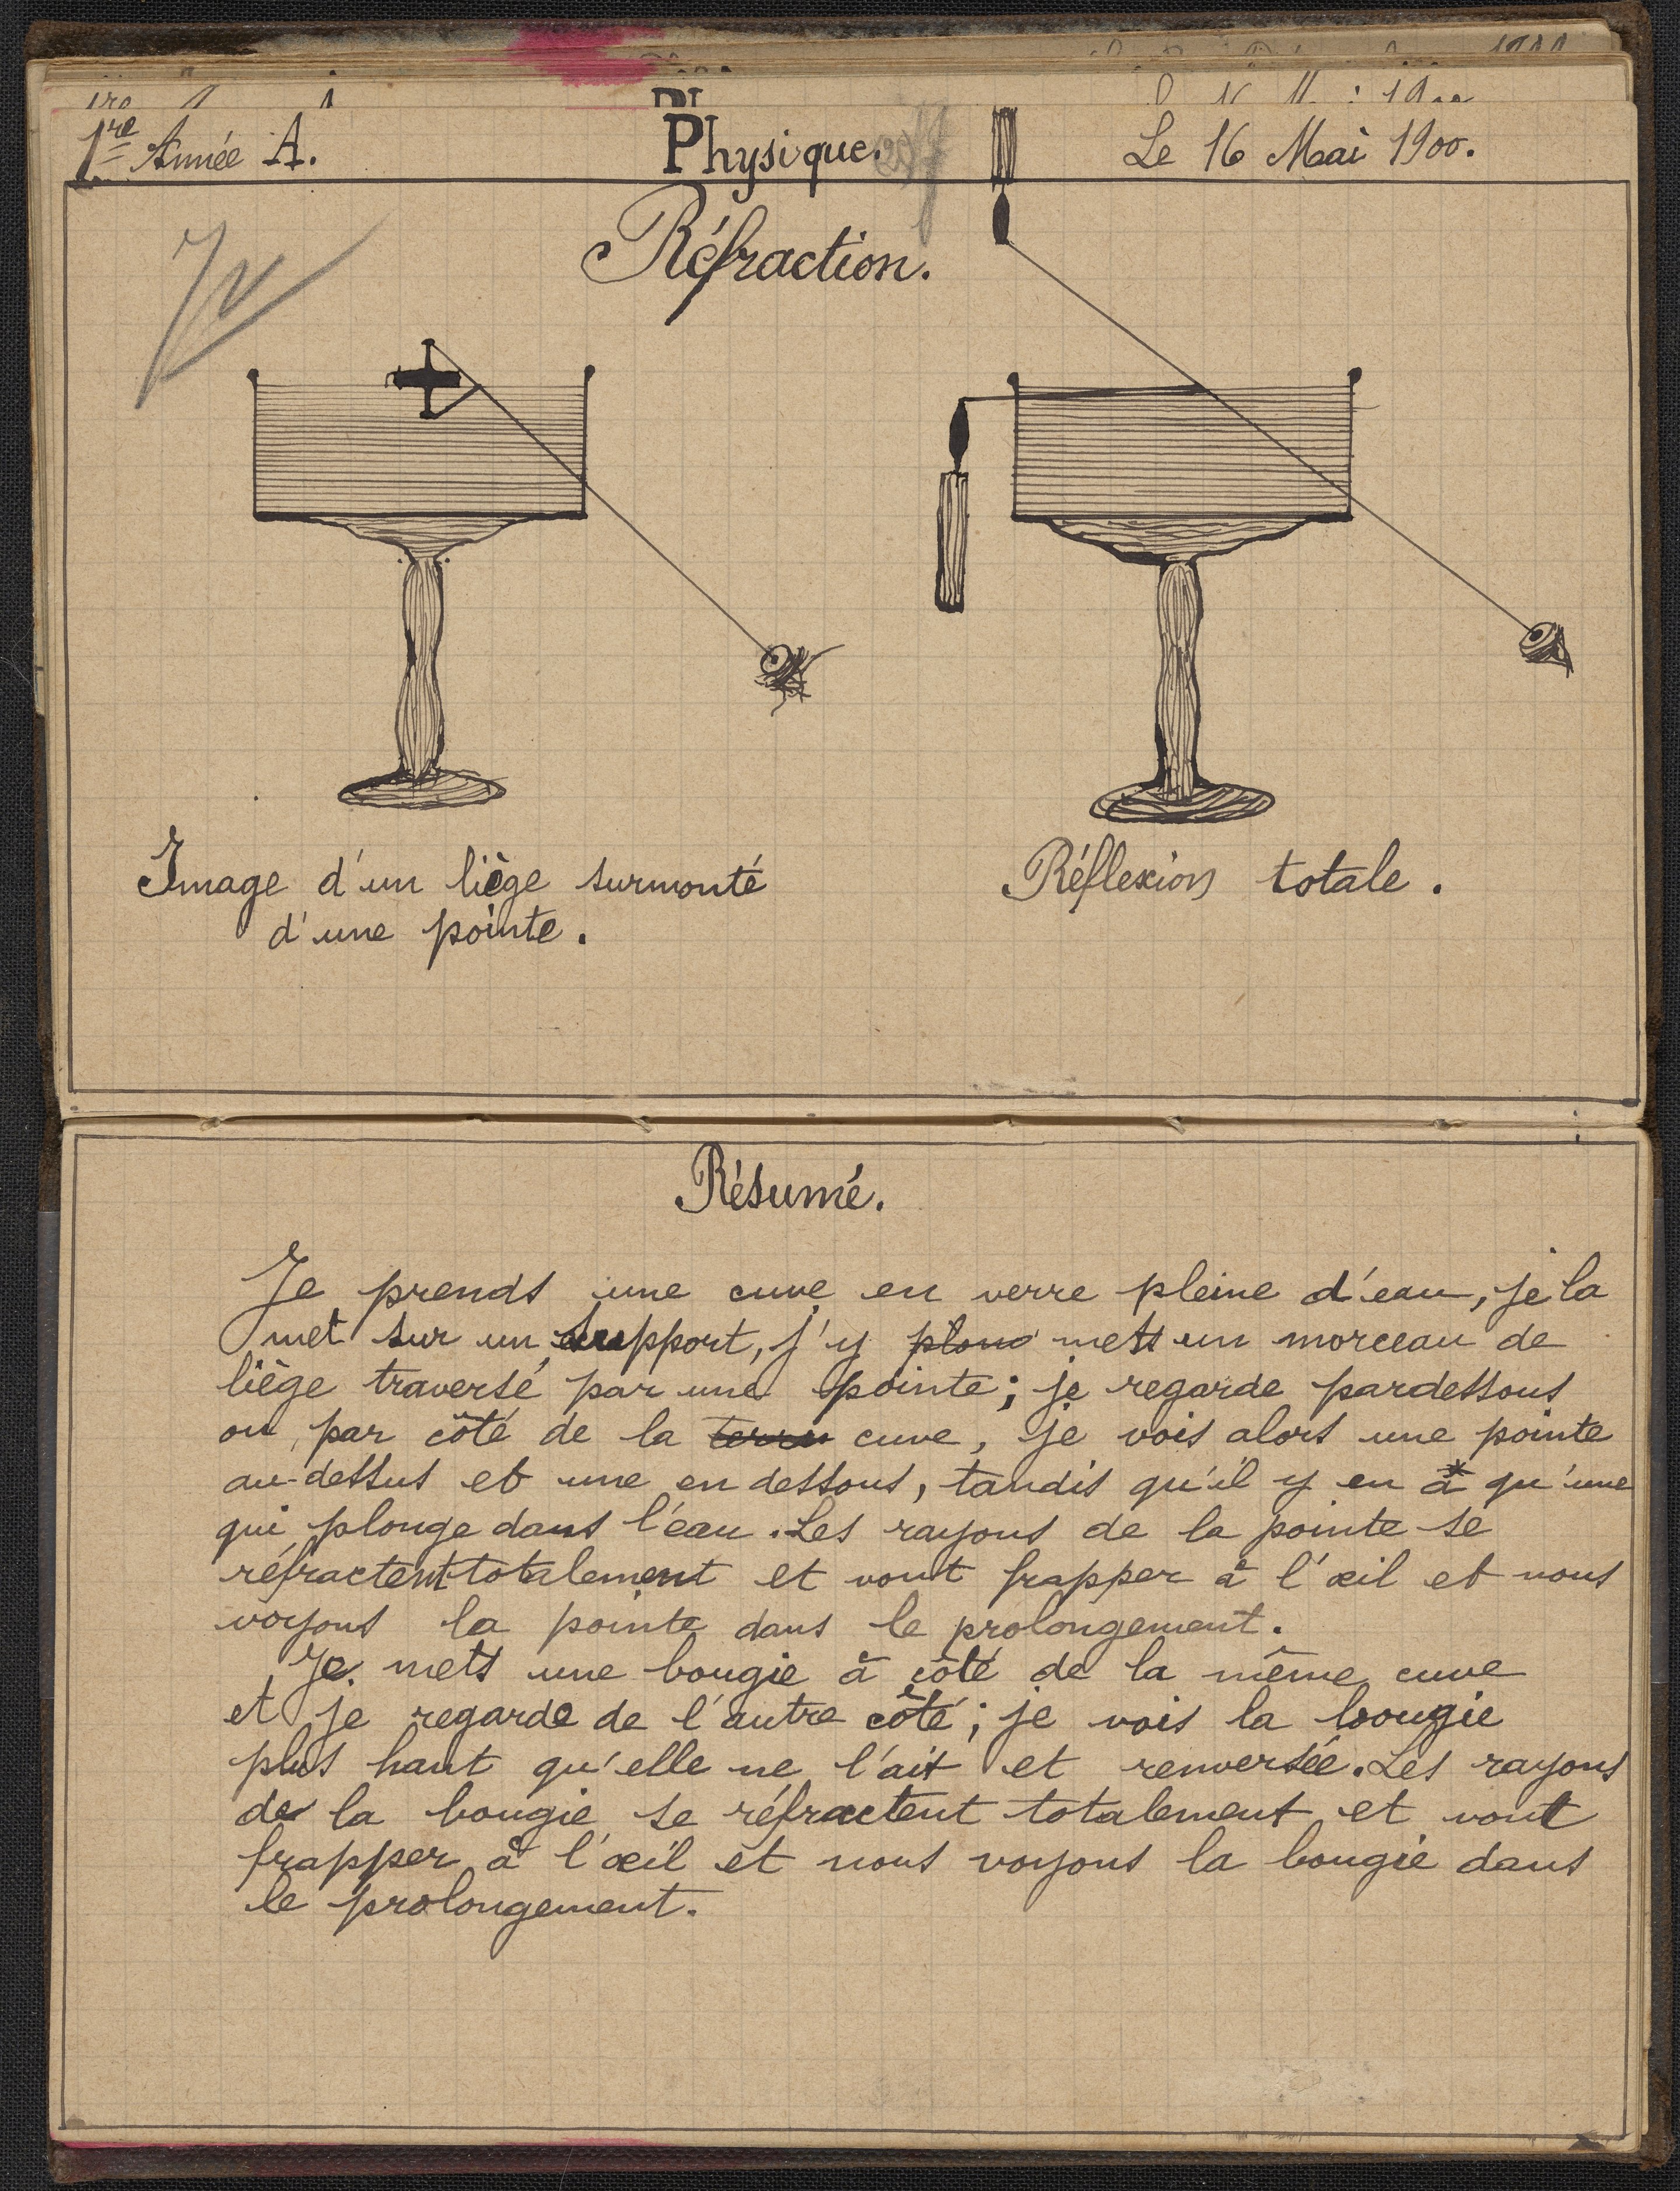 1re Année A.
Physique.
Le 16 Mai 1900.
Réfraction.
Image d'un liège surmonté
d'une pointe.
Réflexion totale.
Résumé.
Je prends une cuve en verre pleine d'eau, je la
met sur un support, j'y plong mets un morceau de
liège traversé par une pointe; je regarde pardessous
ou par côté de la cuve, je vois alors une pointe
au-dessus et une en dessous, tandis qu'il y en à* qu'une
qui plonge dans l'eau. Les rayons de la pointe se
réfractent totalement et vont frapper à l'œil et nous
voyons la pointe dans le prolongement.
Je mets une bougie à côté de la même cuve
et je regarde de l'autre côté; je vois la bougie
plus haut qu'elle ne l'ait et renversée. Les rayons
de la bougie se réfractent totalement et vont
frapper à l'œil et nous voyons la bougie dans
le prolongement.